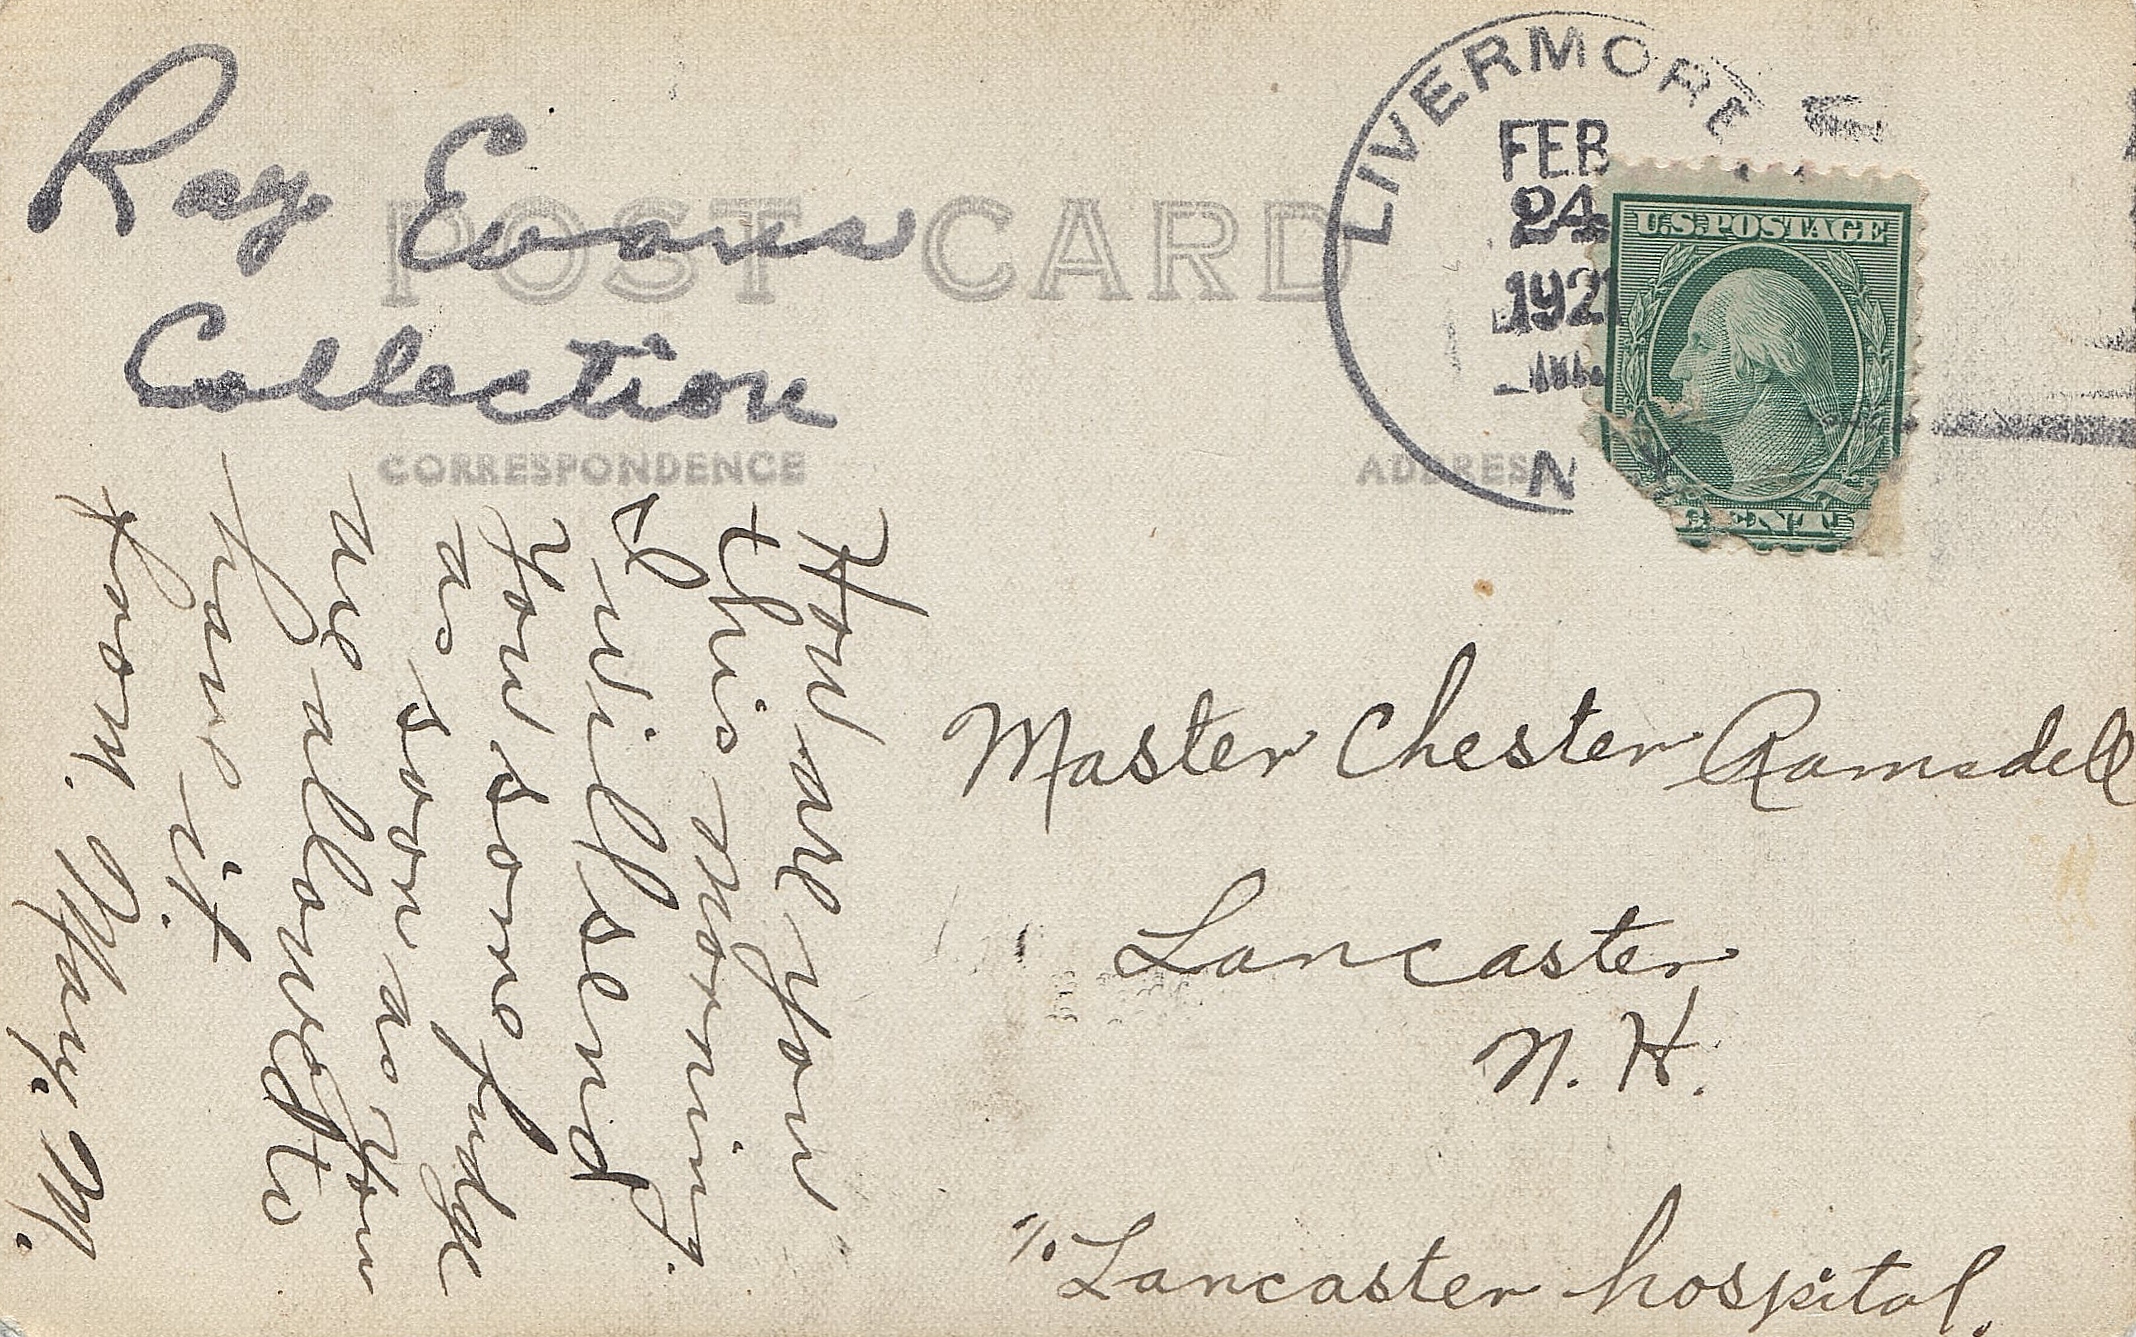 Ray Evans
Collection
POST CARD
CORRESPONDENCE
ADDRESS
LIVERMORE
FEB
24
192
N
U.S. POSTAGE
CENT
How are you
this morning.
I will send
you some fudge
as soon as you
are allowed to
have it
from M. Mary. M.
Master Chester Ramsdell
Lancaster
N. H.
℅ Lancaster hospital.